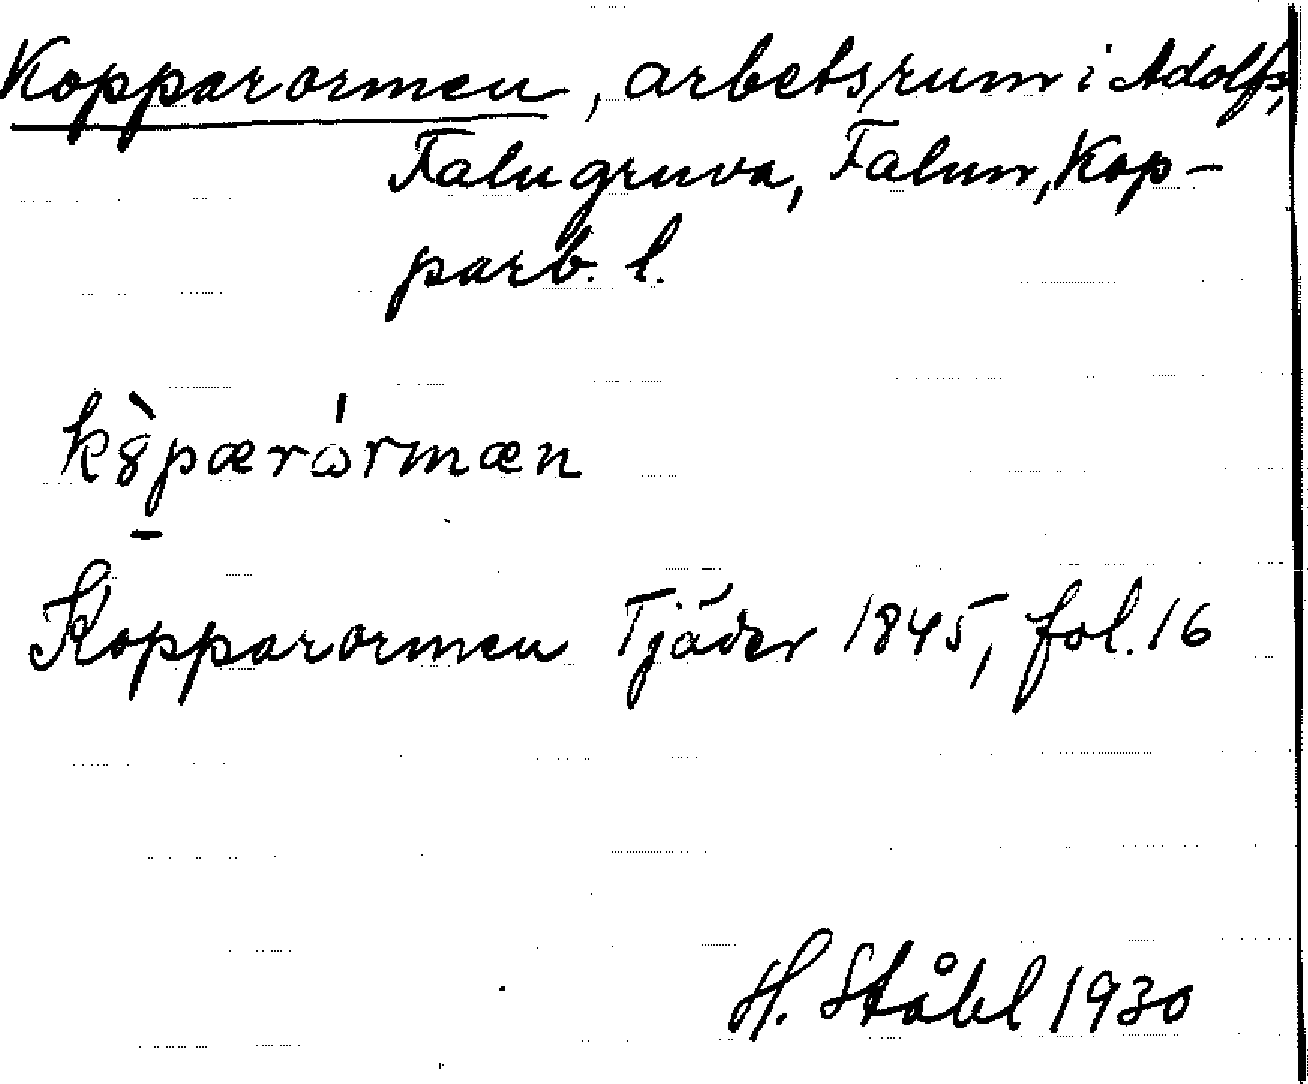 Kopparormen, arbetsrum i Adolfs,
Falu gruva, Falun, Kop-
parb. l.
k8̀pærώrmæn
Kopparormen Tjäder 1845, fol. 16
H. Ståhl 1930